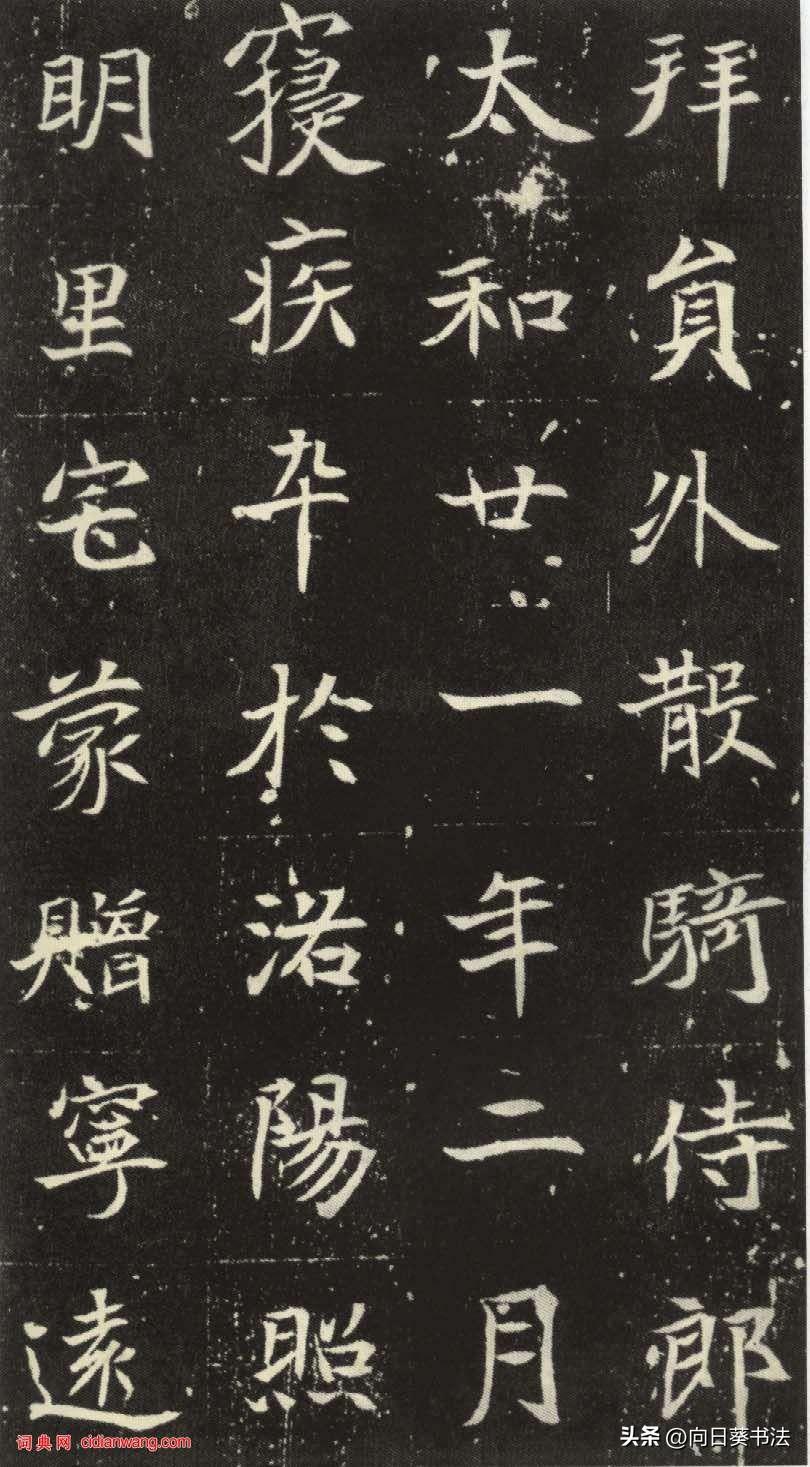 拜員外散騎侍郎
太和廿一年二月
寑疾卒於洛陽照
明里宅蒙贈寧遠
词典网 cidianwang.com
头条 @向日葵书法